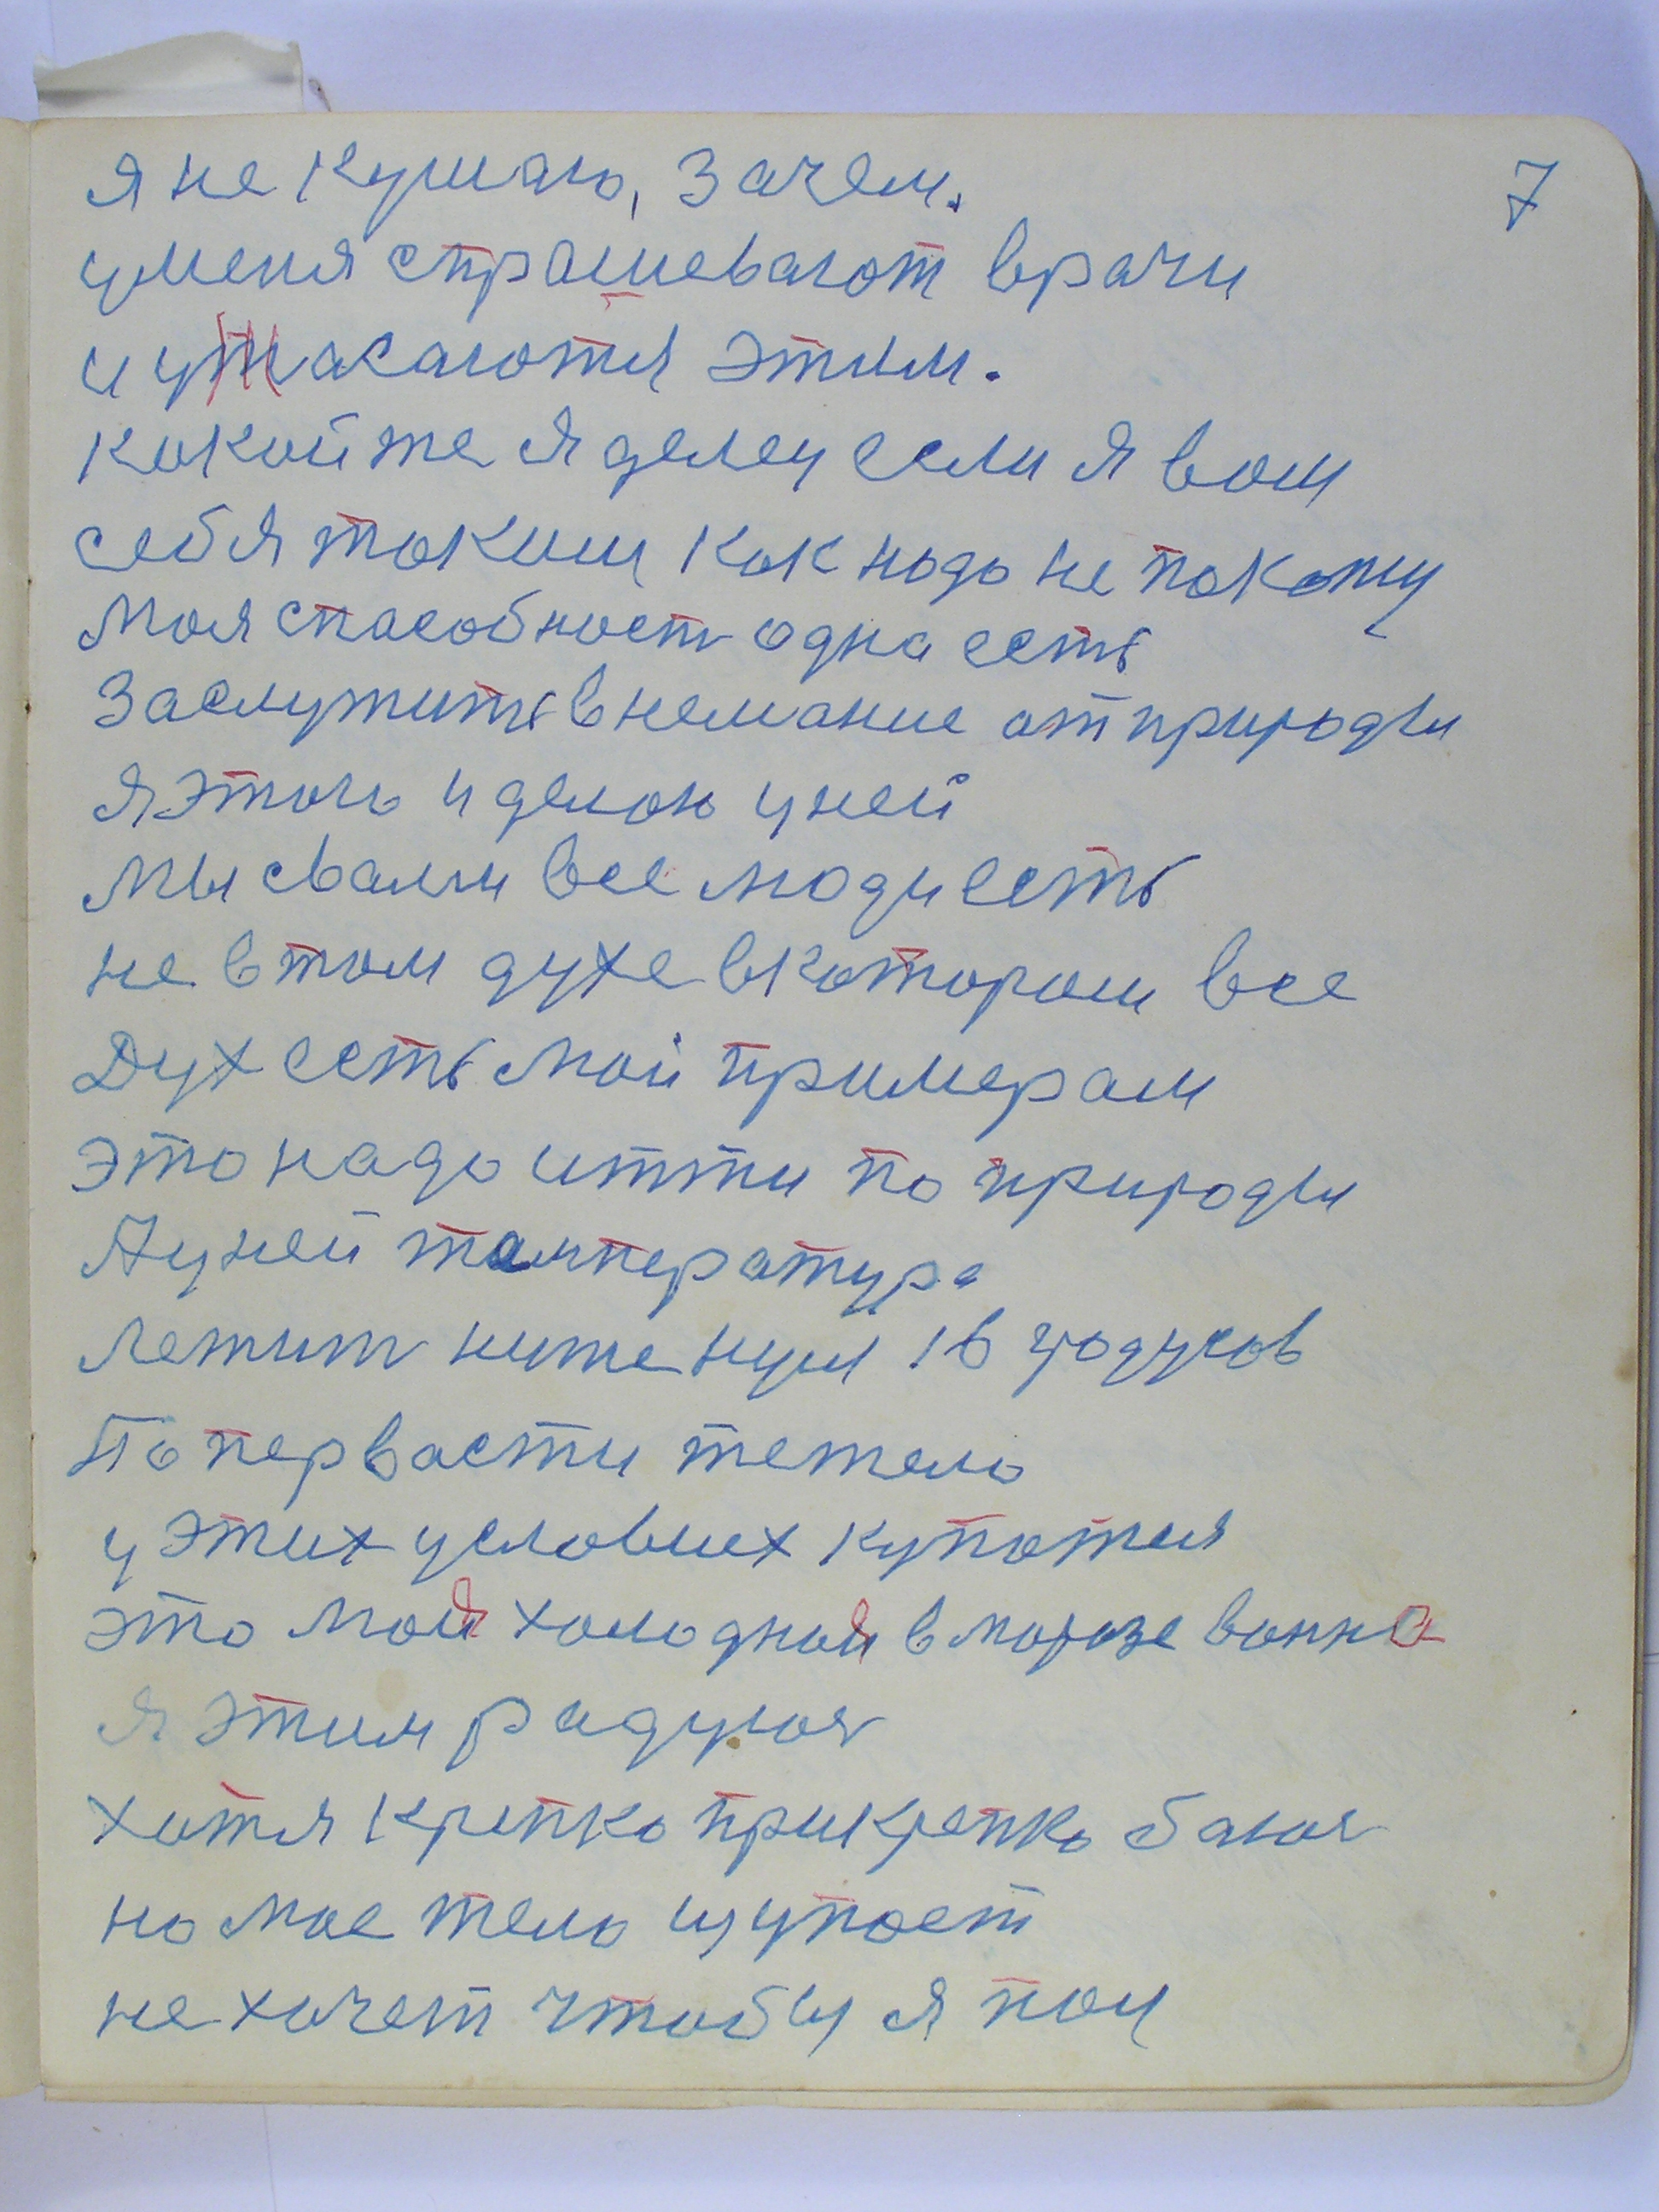 7
я не кушаю, зачем.
уменя спрашевают врачи
и ужасаются этим.
какойже я делец если я вам
себя таким как надо не покажу
Моя спасобность одна есть
Заслужить внемание от природы
я этого и делаю уней
Мы свами все люди есть
не втом духе вкотором все
Дух есть мой примерам
это надо итти по природы
А уней температура
Лежит ниже нуля 16 градусов
По первасти тежело
у этих условиех купатся
это моя холодная в морозе ванна
я этим радуюя
хотя крепко прикрепко баюя
но мое тело щупает
не хочет чтобы я пац